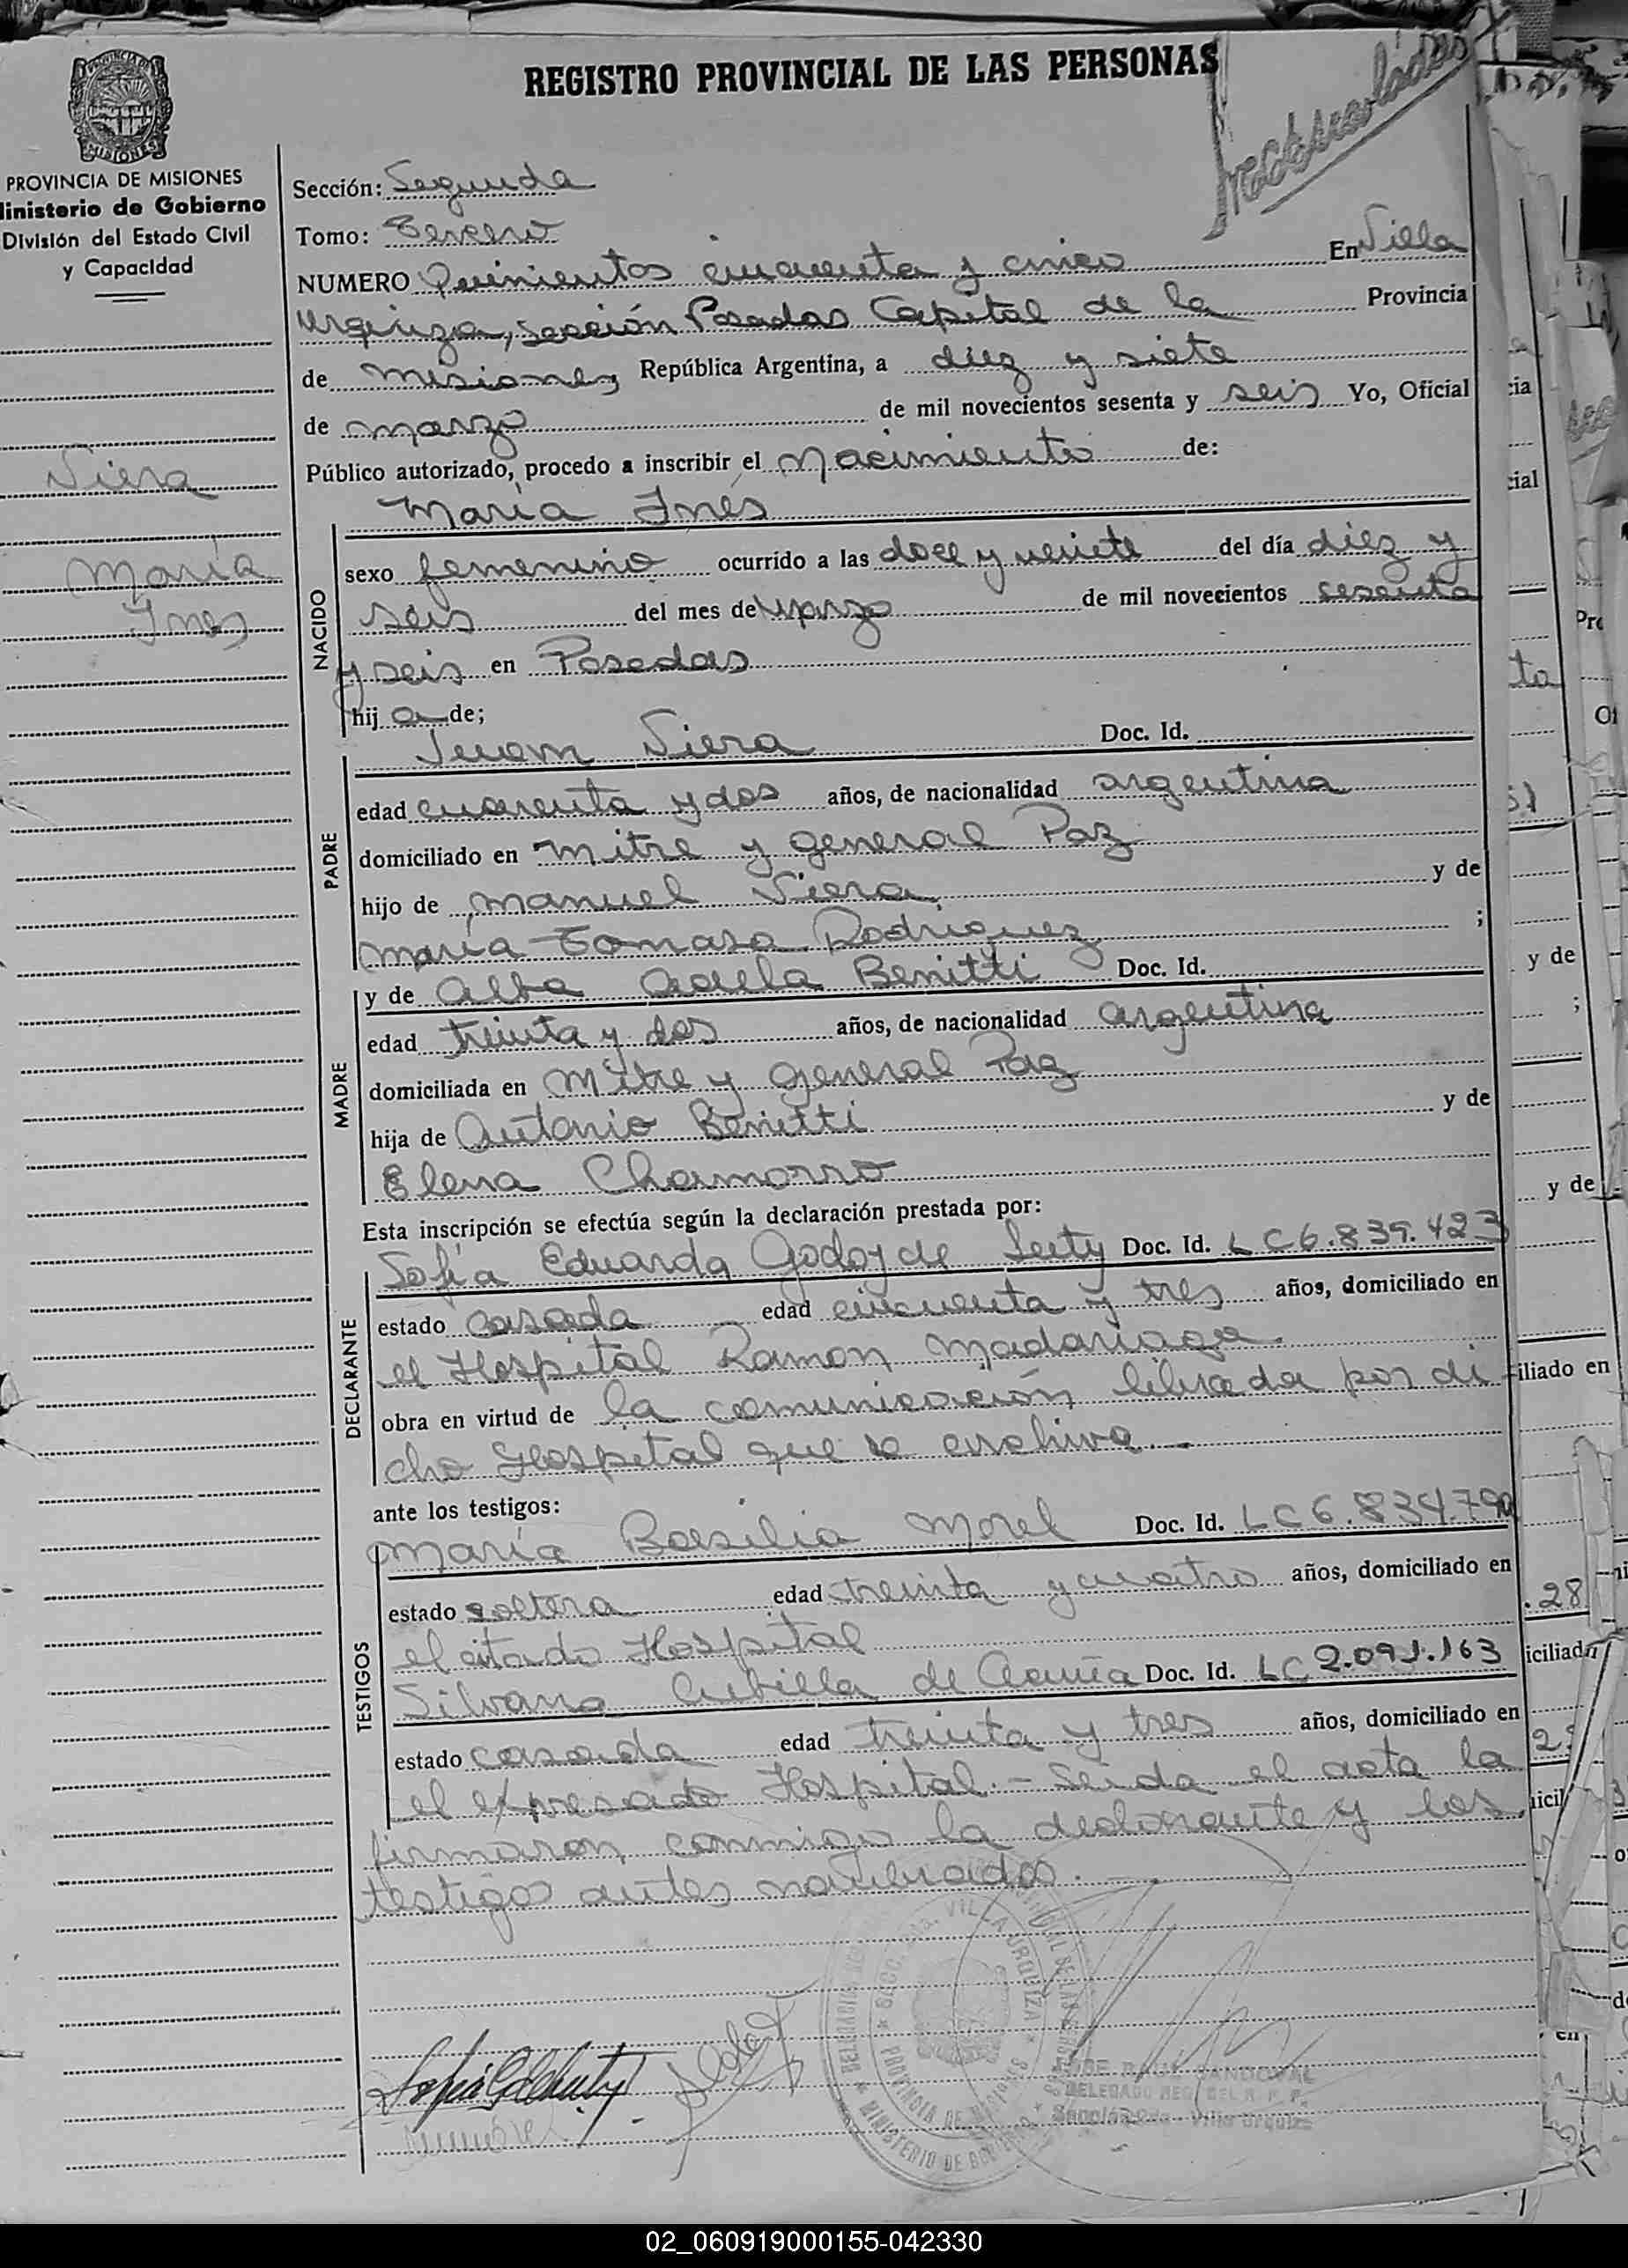 REGISTRO PROVINCIAL DE LAS PERSONAS
PROVINCIA DE MISIONES
Ministerio de Gobierno
División del Estado Civil
y Capacidad
Viera
María
Ines
Sección: Segunda
Tomo: Tercero
NUMERO Quinientos cincuenta y cinco En Villa
Urquiza, sección Posadas Capital de la Provincia
de misiones República Argentina, a diez y siete
de marzo de mil novecientos sesenta y seis Yo, Oficial
Público autorizado, procedo a inscribir el Nacimiento de:
María Inés
NACIDO
sexo femenino ocurrido a las doce y veinte del día diez y
seis del mes de Marzo de mil novecientos sesenta
y seis en Posadas
hij a de;
PADRE
Juan Viera Doc. Id.
edad cuarenta y dos años, de nacionalidad argentina
domiciliado en mitre y general Paz
hijo de manuel Viera y de
maría Tomasa Rodriguez ;
MADRE
y de Alba Adela Benitti Doc. Id.
edad treinta y dos años, de nacionalidad argentina
domiciliada en mitre y general Paz
hija de Antonio Benitti y de
Elena Chamorro
Esta inscripción se efectúa según la declaración prestada por:
DECLARANTE
Sofía Eduarda Godoy de Doc. Id. LC6.839.423
estado casada edad cincuenta y tres años, domiciliado en
el Hospital Ramon madariaga.
obra en virtud de la comunicación librada por di
cho Hospital que se archiva
ante los testigos:
TESTIGOS
maría Basilia Morel Doc. Id. LC6.834.790
estado soltera edad treinta y cuatro años, domiciliado en
el citado Hospital
Silvana Cubilla de Acuña Doc. Id. LC 2.091.163
estado casada edad treinta y tres años, domiciliado en
el expresado Hospital.- Leida el acta la
firmaron conmigo la declarante y los
testigos antes nombrados.
SECC. 2da. VILLA URQUIZA
PROVINCIA DE MISIONES
MINISTERIO DE GOBIERNO
SANDOVAL
DELEGADO REG. DEL R. P. P.
Sección 2da - Villa Urquiza
02_060919000155-042330